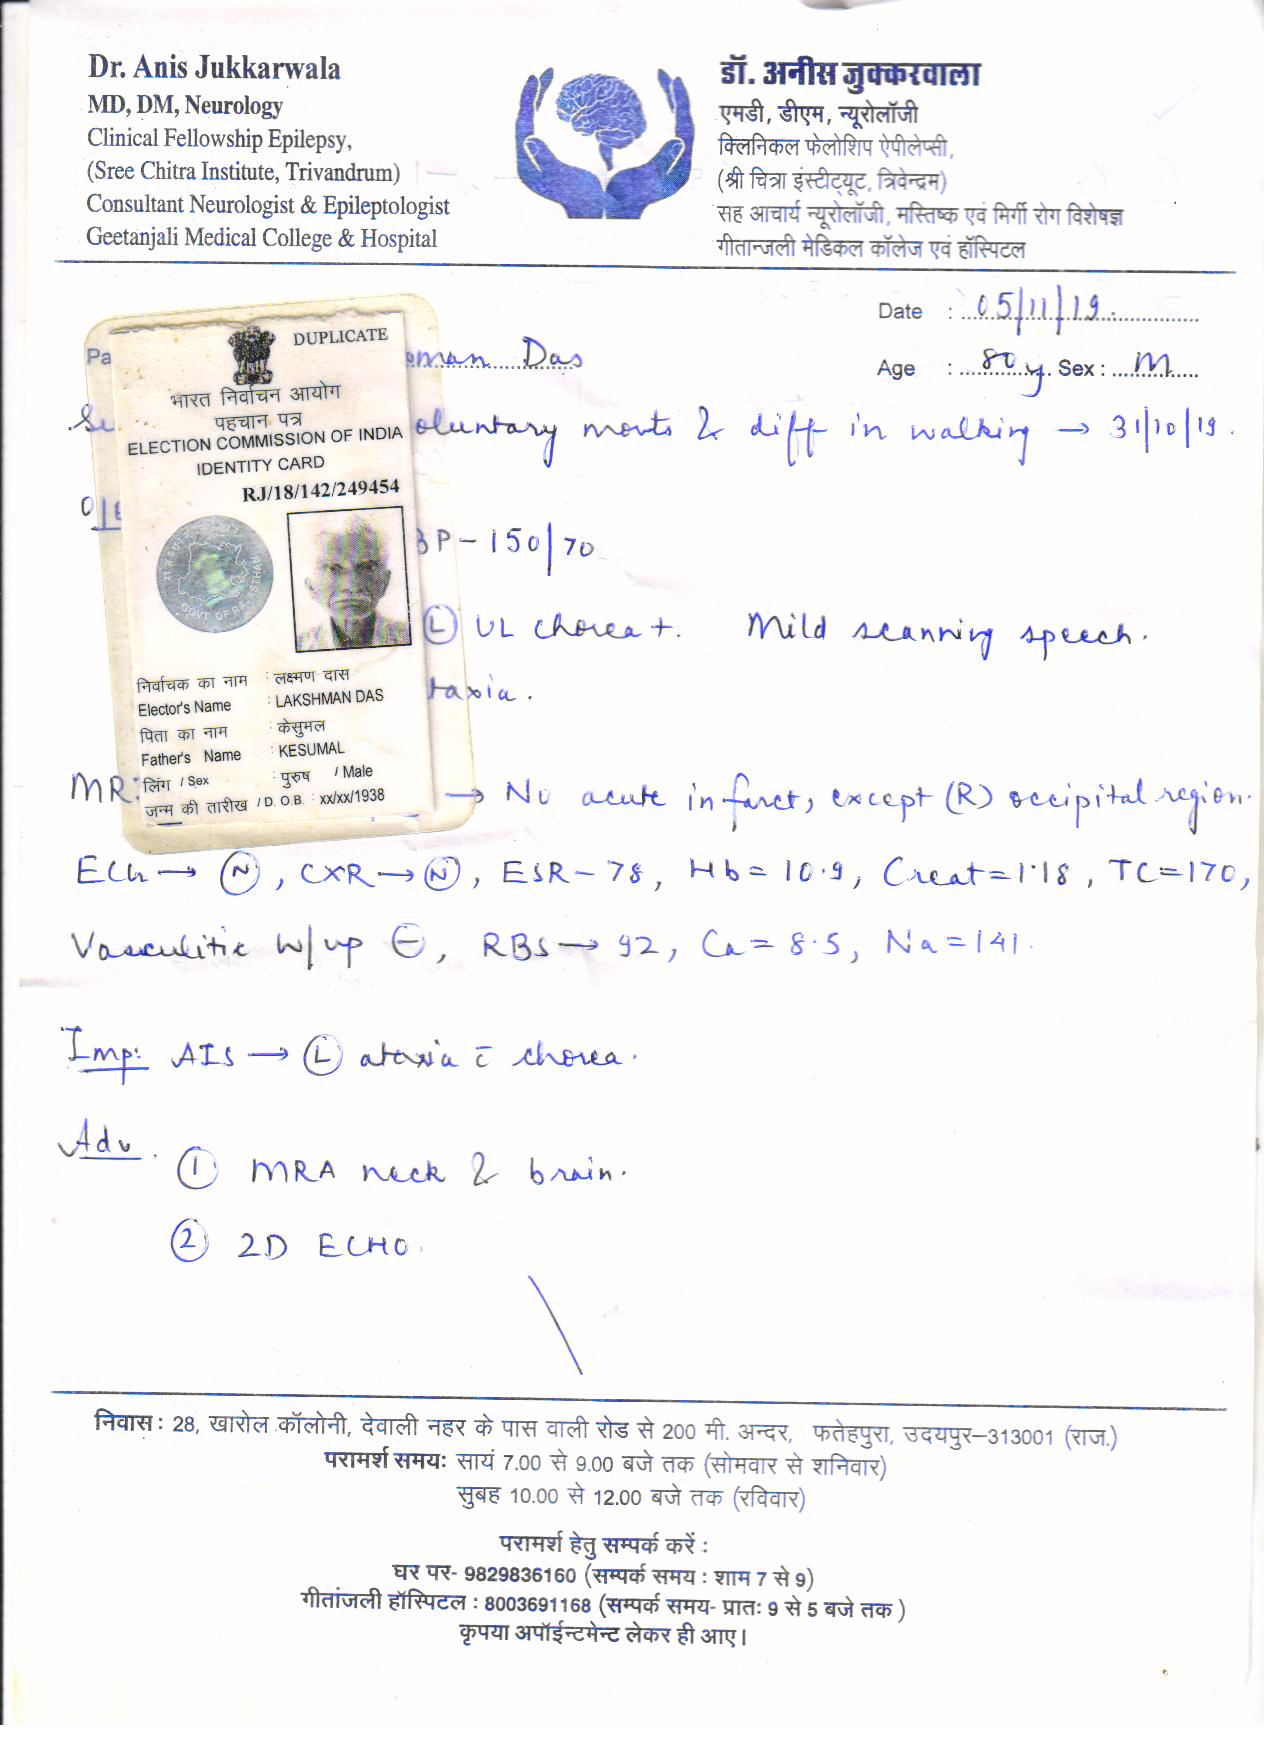 Dr. Anis Jukkarwala
MD, DM, Neurology
Clinical Fellowship Epilepsy,
(Sree Chitra Institute, Trivandrum)
Consultant Neurologist & Epileptologist
Geetanjali Medical College & Hospital
डॉ. अनीस जुक्करवाला
एमडी, डीएम, न्यूरोलॉजी
क्लिनिकल फेलोशिप ऐपीलेप्सी,
(श्री चित्रा इंस्टीट्यूट, त्रिवेन्द्रम)
सह आचार्य न्यूरोलॉजी, मस्तिष्क एवं मिर्गी रोग विशेषज्ञ
गीतान्जली मेडिकल कॉलेज एवं हॉस्पिटल
Date : 05/11/19.
Das
Age : 80 y Sex : M
movts & diff in walking → 31/10/19.
BP - 150/70
(L) UL chorea +. Mild scanning speech.
DUPLICATE
भारत निर्वाचन आयोग
पहचान पत्र
ELECTION COMMISSION OF INDIA
IDENTITY CARD
RJ/18/142/249454
GOVT OF RAJASTHAN
निर्वाचक का नाम : लक्ष्मण दास
Elector's Name : LAKSHMAN DAS
पिता का नाम : केसुमल
Father's Name : KESUMAL
लिंग / Sex : पुरुष / Male
जन्म की तारीख / D. O.B. : xx/xx/1938
→ No acute infarct, except (R) occipital region.
ECG → (N), CXR → (N), ESR - 78, Hb = 10.9, Creat = 1.18, TC = 170,
Vasculitic w/up ⊖, RBS → 92, Ca = 8.5, Na = 141.
Imp: AIS → (L) ataxia c̄ chorea.
Adv.
① MRA neck & brain.
② 2D ECHO.
निवास : 28, खारोल कॉलोनी, देवाली नहर के पास वाली रोड से 200 मी. अन्दर, फतेहपुरा, उदयपुर–313001 (राज.)
परामर्श समयः सायं 7.00 से 9.00 बजे तक (सोमवार से शनिवार)
सुबह 10.00 से 12.00 बजे तक (रविवार)
परामर्श हेतु सम्पर्क करें :
घर पर- 9829836160 (सम्पर्क समय : शाम 7 से 9)
गीतांजली हॉस्पिटल : 8003691168 (सम्पर्क समय- प्रातः 9 से 5 बजे तक )
कृपया अपॉईन्टमेन्ट लेकर ही आए।